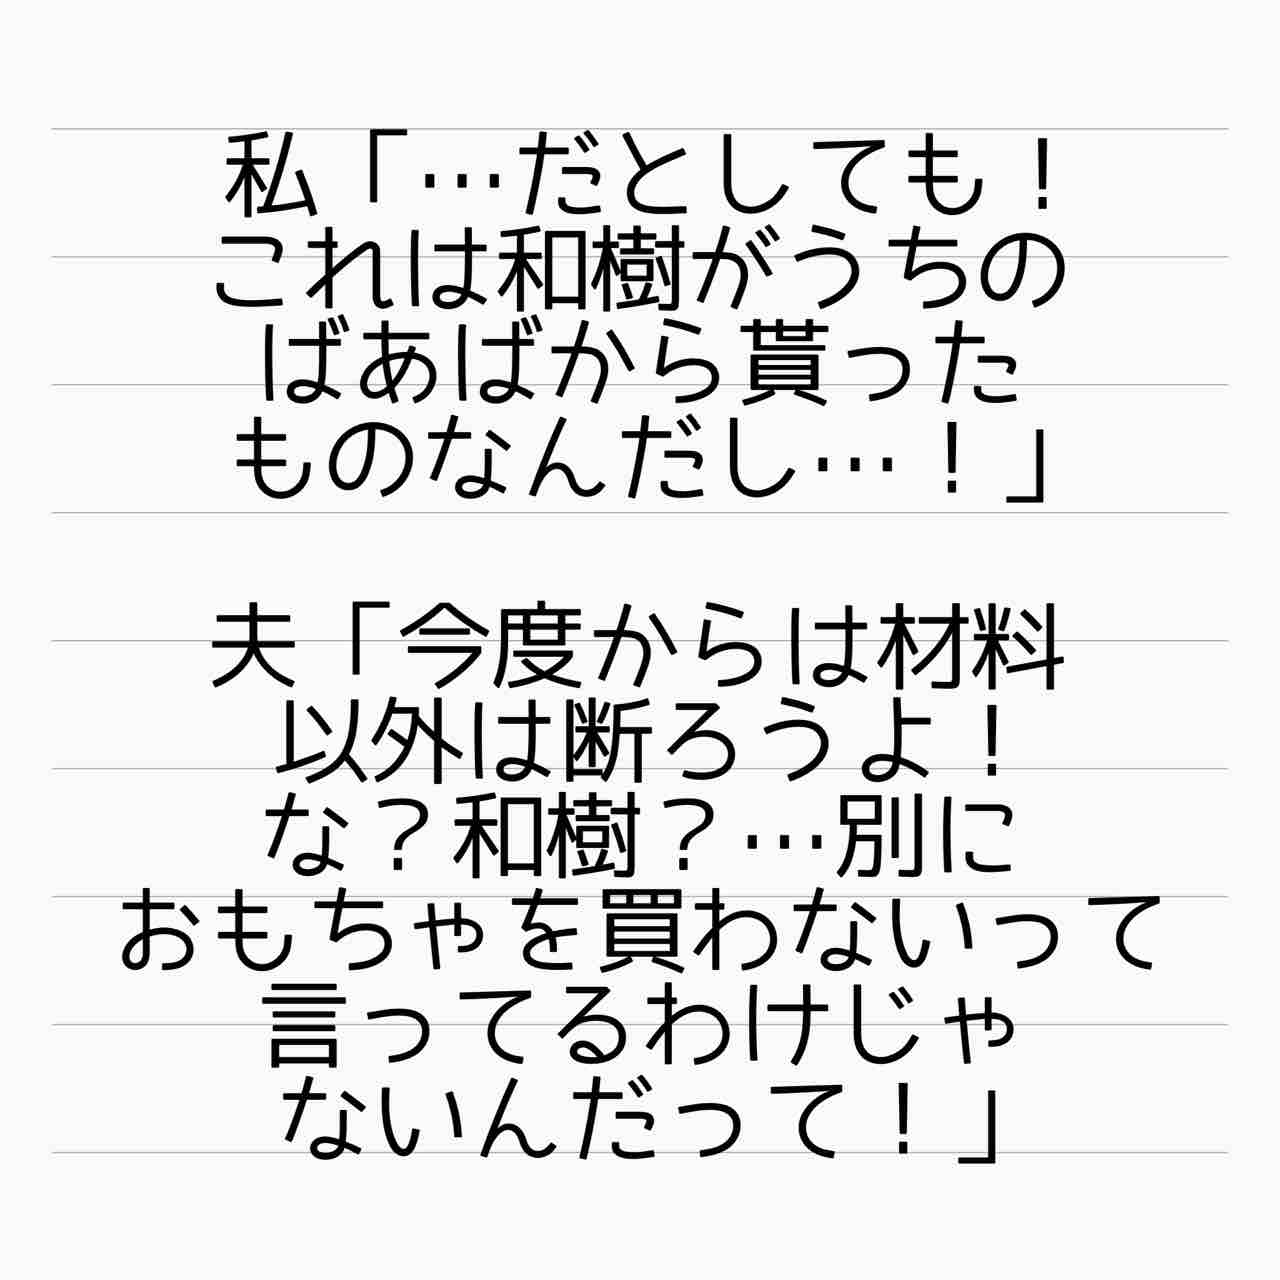 私「…だとしても！
これは和樹がうちの
ばあばから貰った
ものなんだし…！」
夫「今度からは材料
以外は断ろうよ！
な？和樹？…別に
おもちゃを買わないって
言ってるわけじゃ
ないんだって！」